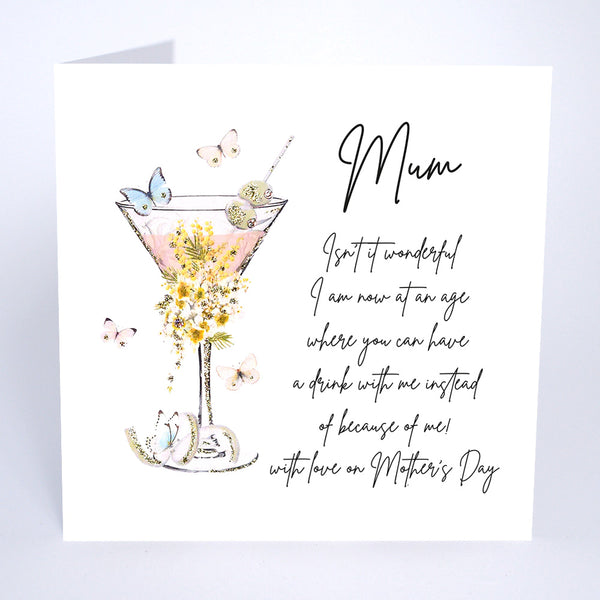 Mum
Isn't it wonderful
I am now at an age
where you can have
a drink with me instead
of because of me!
with love on Mother's Day